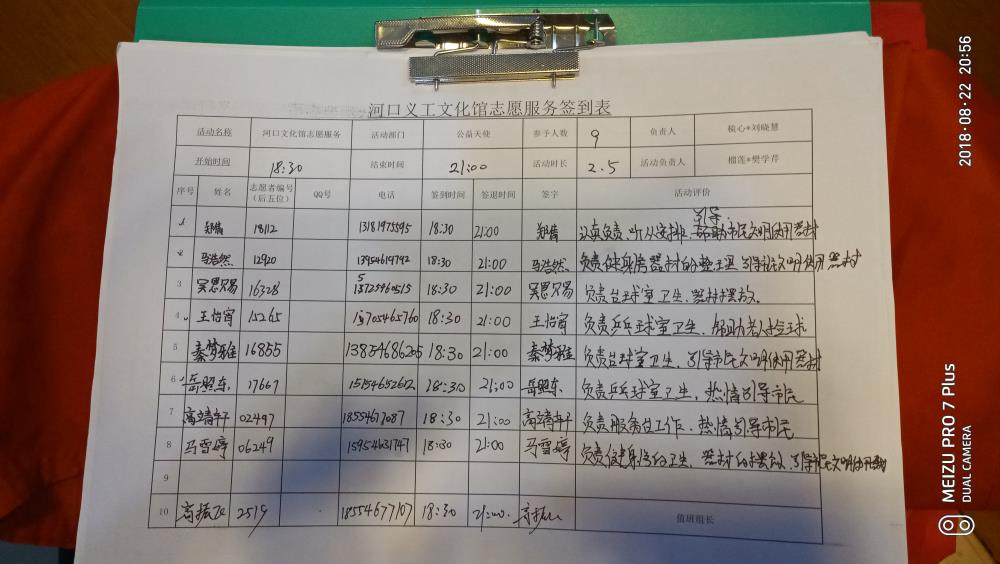 河口义工文化馆志愿服务签到表
活动名称 河口文化馆志愿服务 活动部门 公益天使 参予人数 9 负责人 梳心*刘晓慧
开始时间 18:30 结束时间 21:00 活动时长 2.5 活动负责人 榴莲*樊学芹
序号 姓名 志愿者编号（后五位） QQ号 电话 签到时间 签退时间 签字 活动评价
1 18112 13181975595 18:30 21:00 认真负责、听从安排、引导市民文明使用器材
2 马浩然 12920 13954619792 18:30 21:00 马浩然 负责健身房器材的整理 引导市民文明使用器材
3 吴思易 16328 18:30 21:00 吴思易 负责台球室卫生、器材摆放。
4 王怡宵 15265 18:30 21:00 王怡宵 负责乒乓球室卫生、帮助老人捡球
5 秦梦雅 16855 13854686205 18:30 21:00 秦梦雅 负责台球室卫生、引导市民文明使用器材
6 岳照东 17667 15154652612 18:30 21:00 岳照东 负责乒乓球室卫生、热情引导市民
7 高靖轩 02497 18554677087 18:30 21:00 高靖轩 负责服务台工作、热情引导市民
8 马雪婷 06249 15954631747 18:30 21:00 马雪婷 负责健身房的卫生、器材的摆放、引导市民文明使用器材
9
10 2519 18554677107 18:30 21:00 值班组长
2018-08-22 20:56
MEIZU PRO 7 Plus
DUAL CAMERA